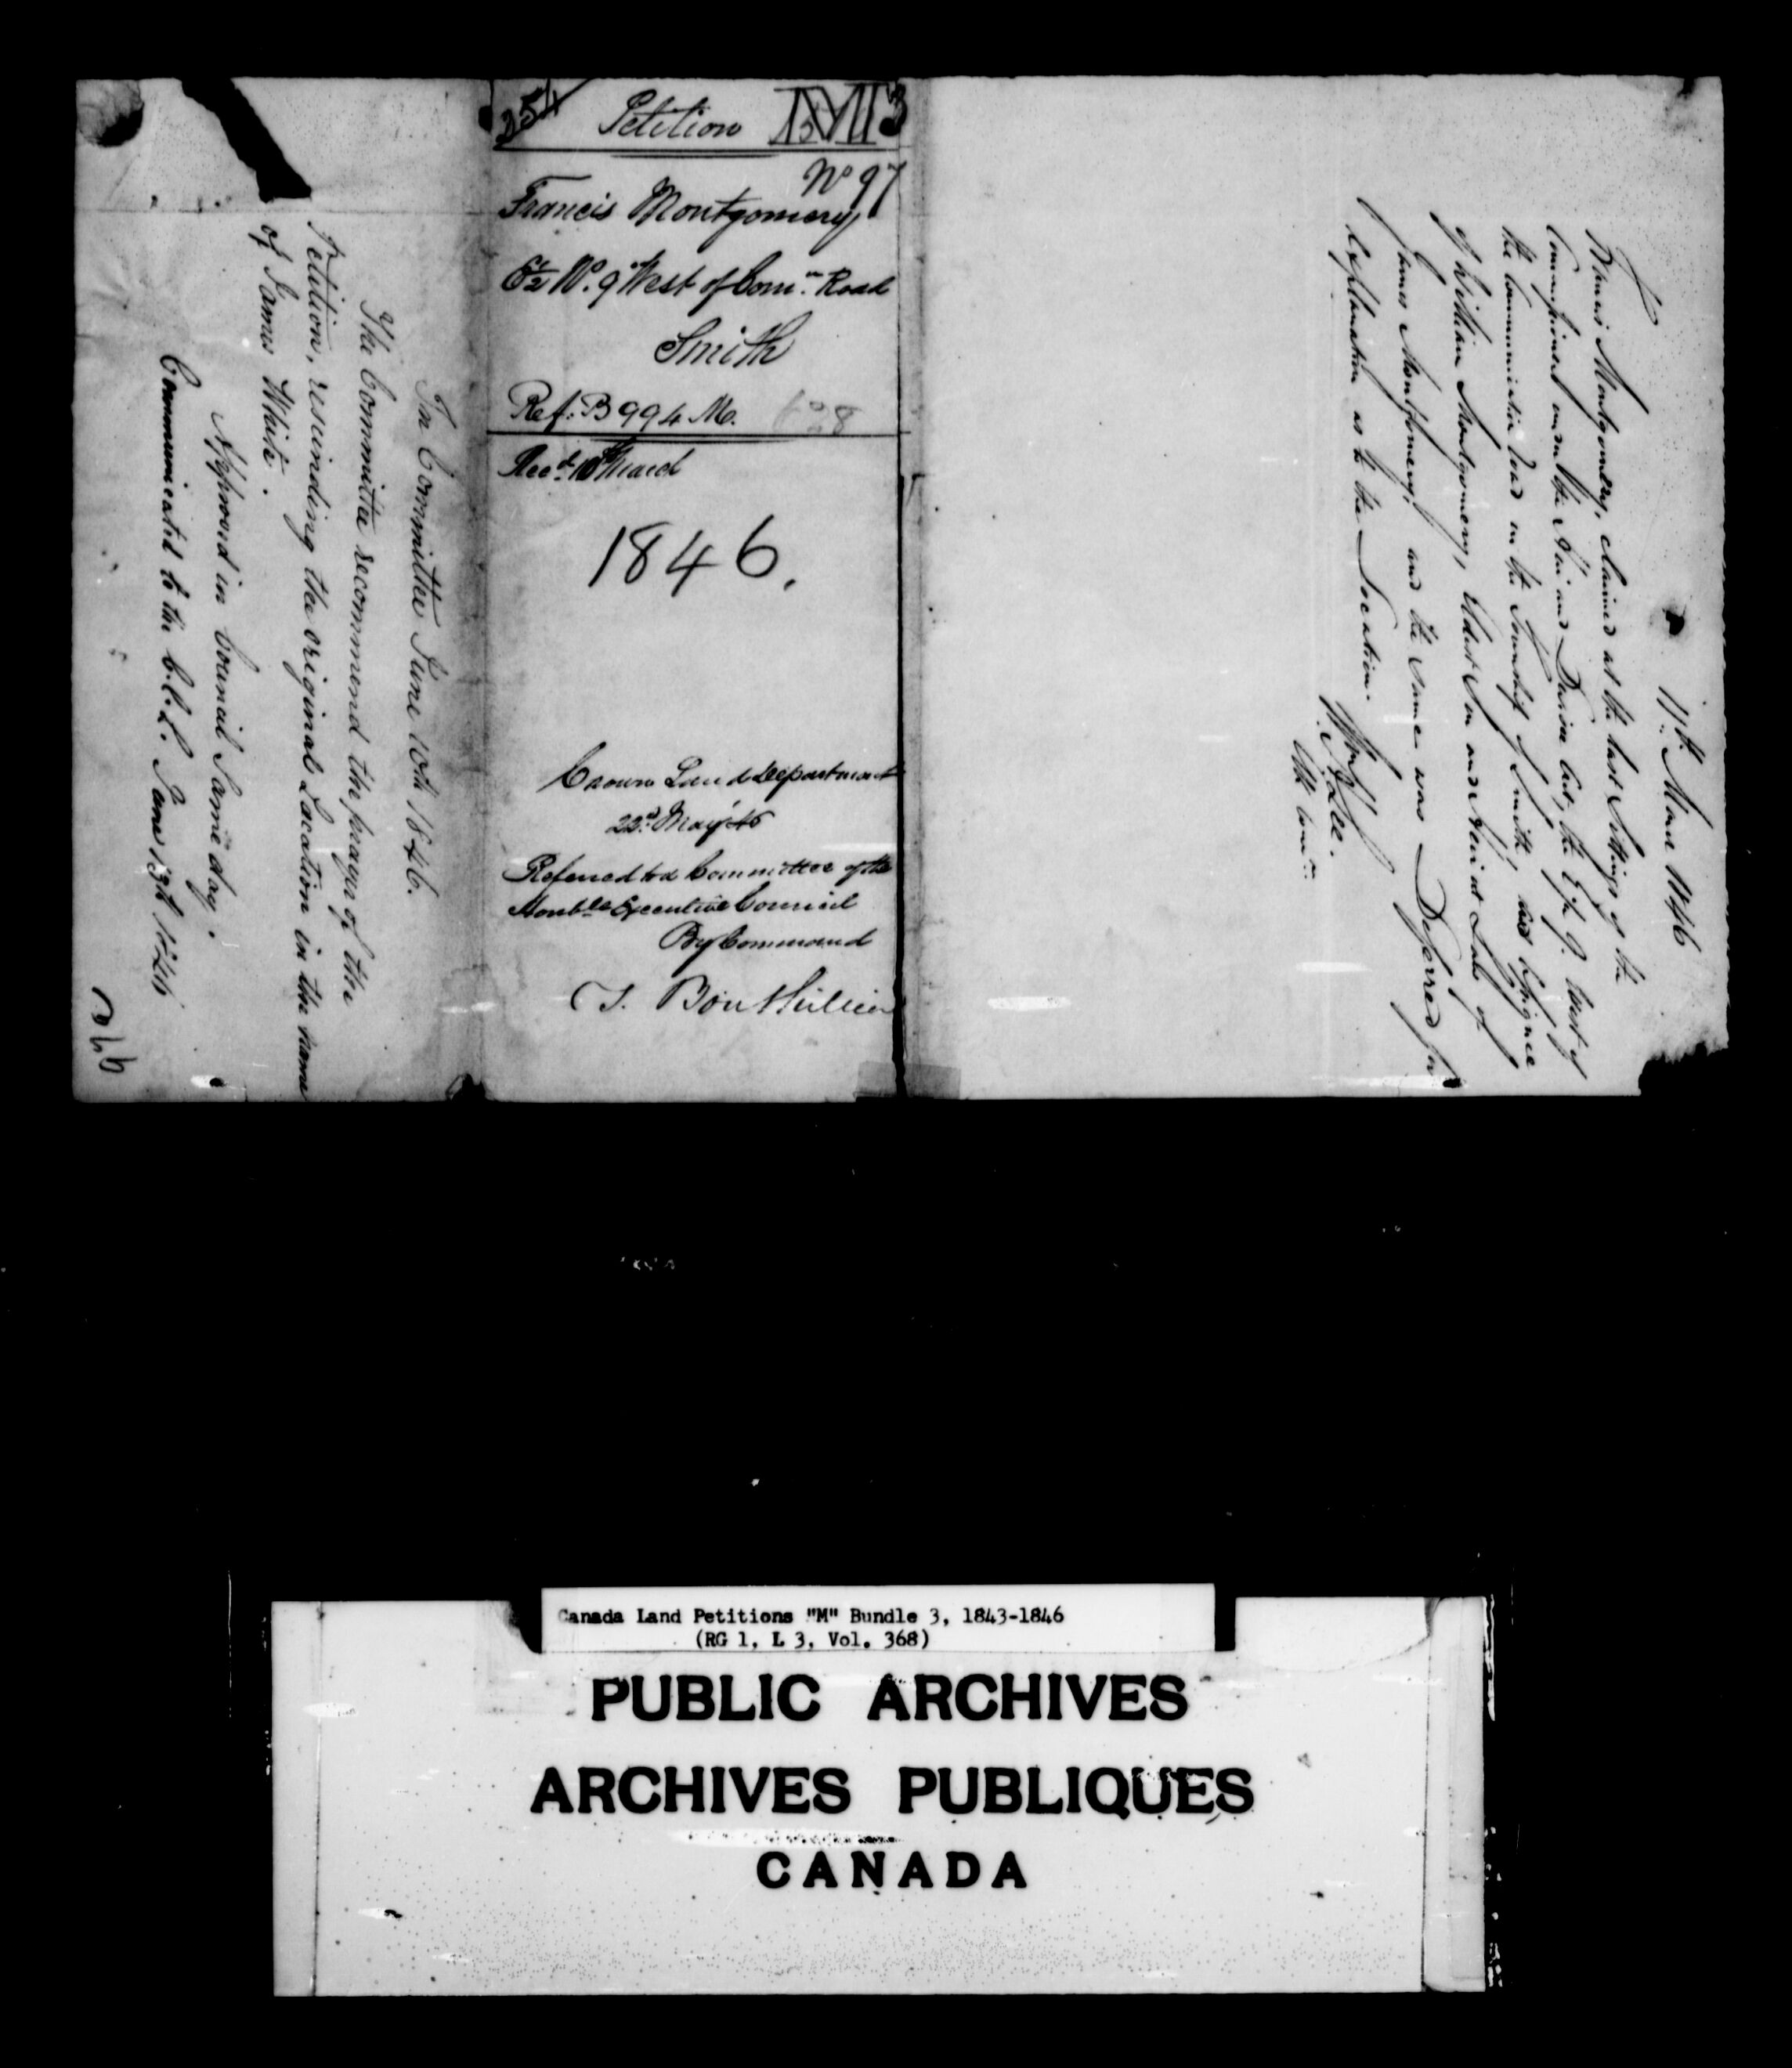 In Committee June 10th 1846.
The Committee recommend the prayer of the
Petition, rescinding the original Location in the name
of James White.
Approved in Council Same day.
Communicated to the C.C.L. June 13th 1846
254 Petition M3
No 97
Francis Montgomery
E½ No. 9 West of Comn. Road
Smith
Ref: B 994 M.
Recd. 18th March
1846.
Crown Land Department
22d May 46
Referred to a Committee of the
Honble Executive Council
By Command
T. Bouthillier
11th March 1846
Francis Montgomery, claimed at the last Sittings of the
Commissioners under the Heir and Devisee Act, the E½ 9. West of
the Communication Road in the Township of Smith, as Assignee
of William Montgomery, Eldest Son and Heir at Law of
James Montgomery, and the same was Deferred for
Explanation as to the Location.
Wm. Lee.
Canada Land Petitions "M" Bundle 3, 1843-1846
(RG 1, L 3, Vol. 368)
PUBLIC ARCHIVES
ARCHIVES PUBLIQUES
CANADA